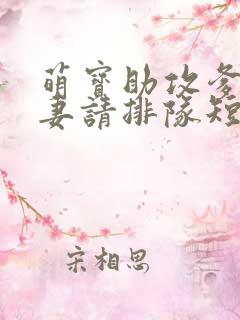 萌寶助攻爹
妻請排隊短
宋相思